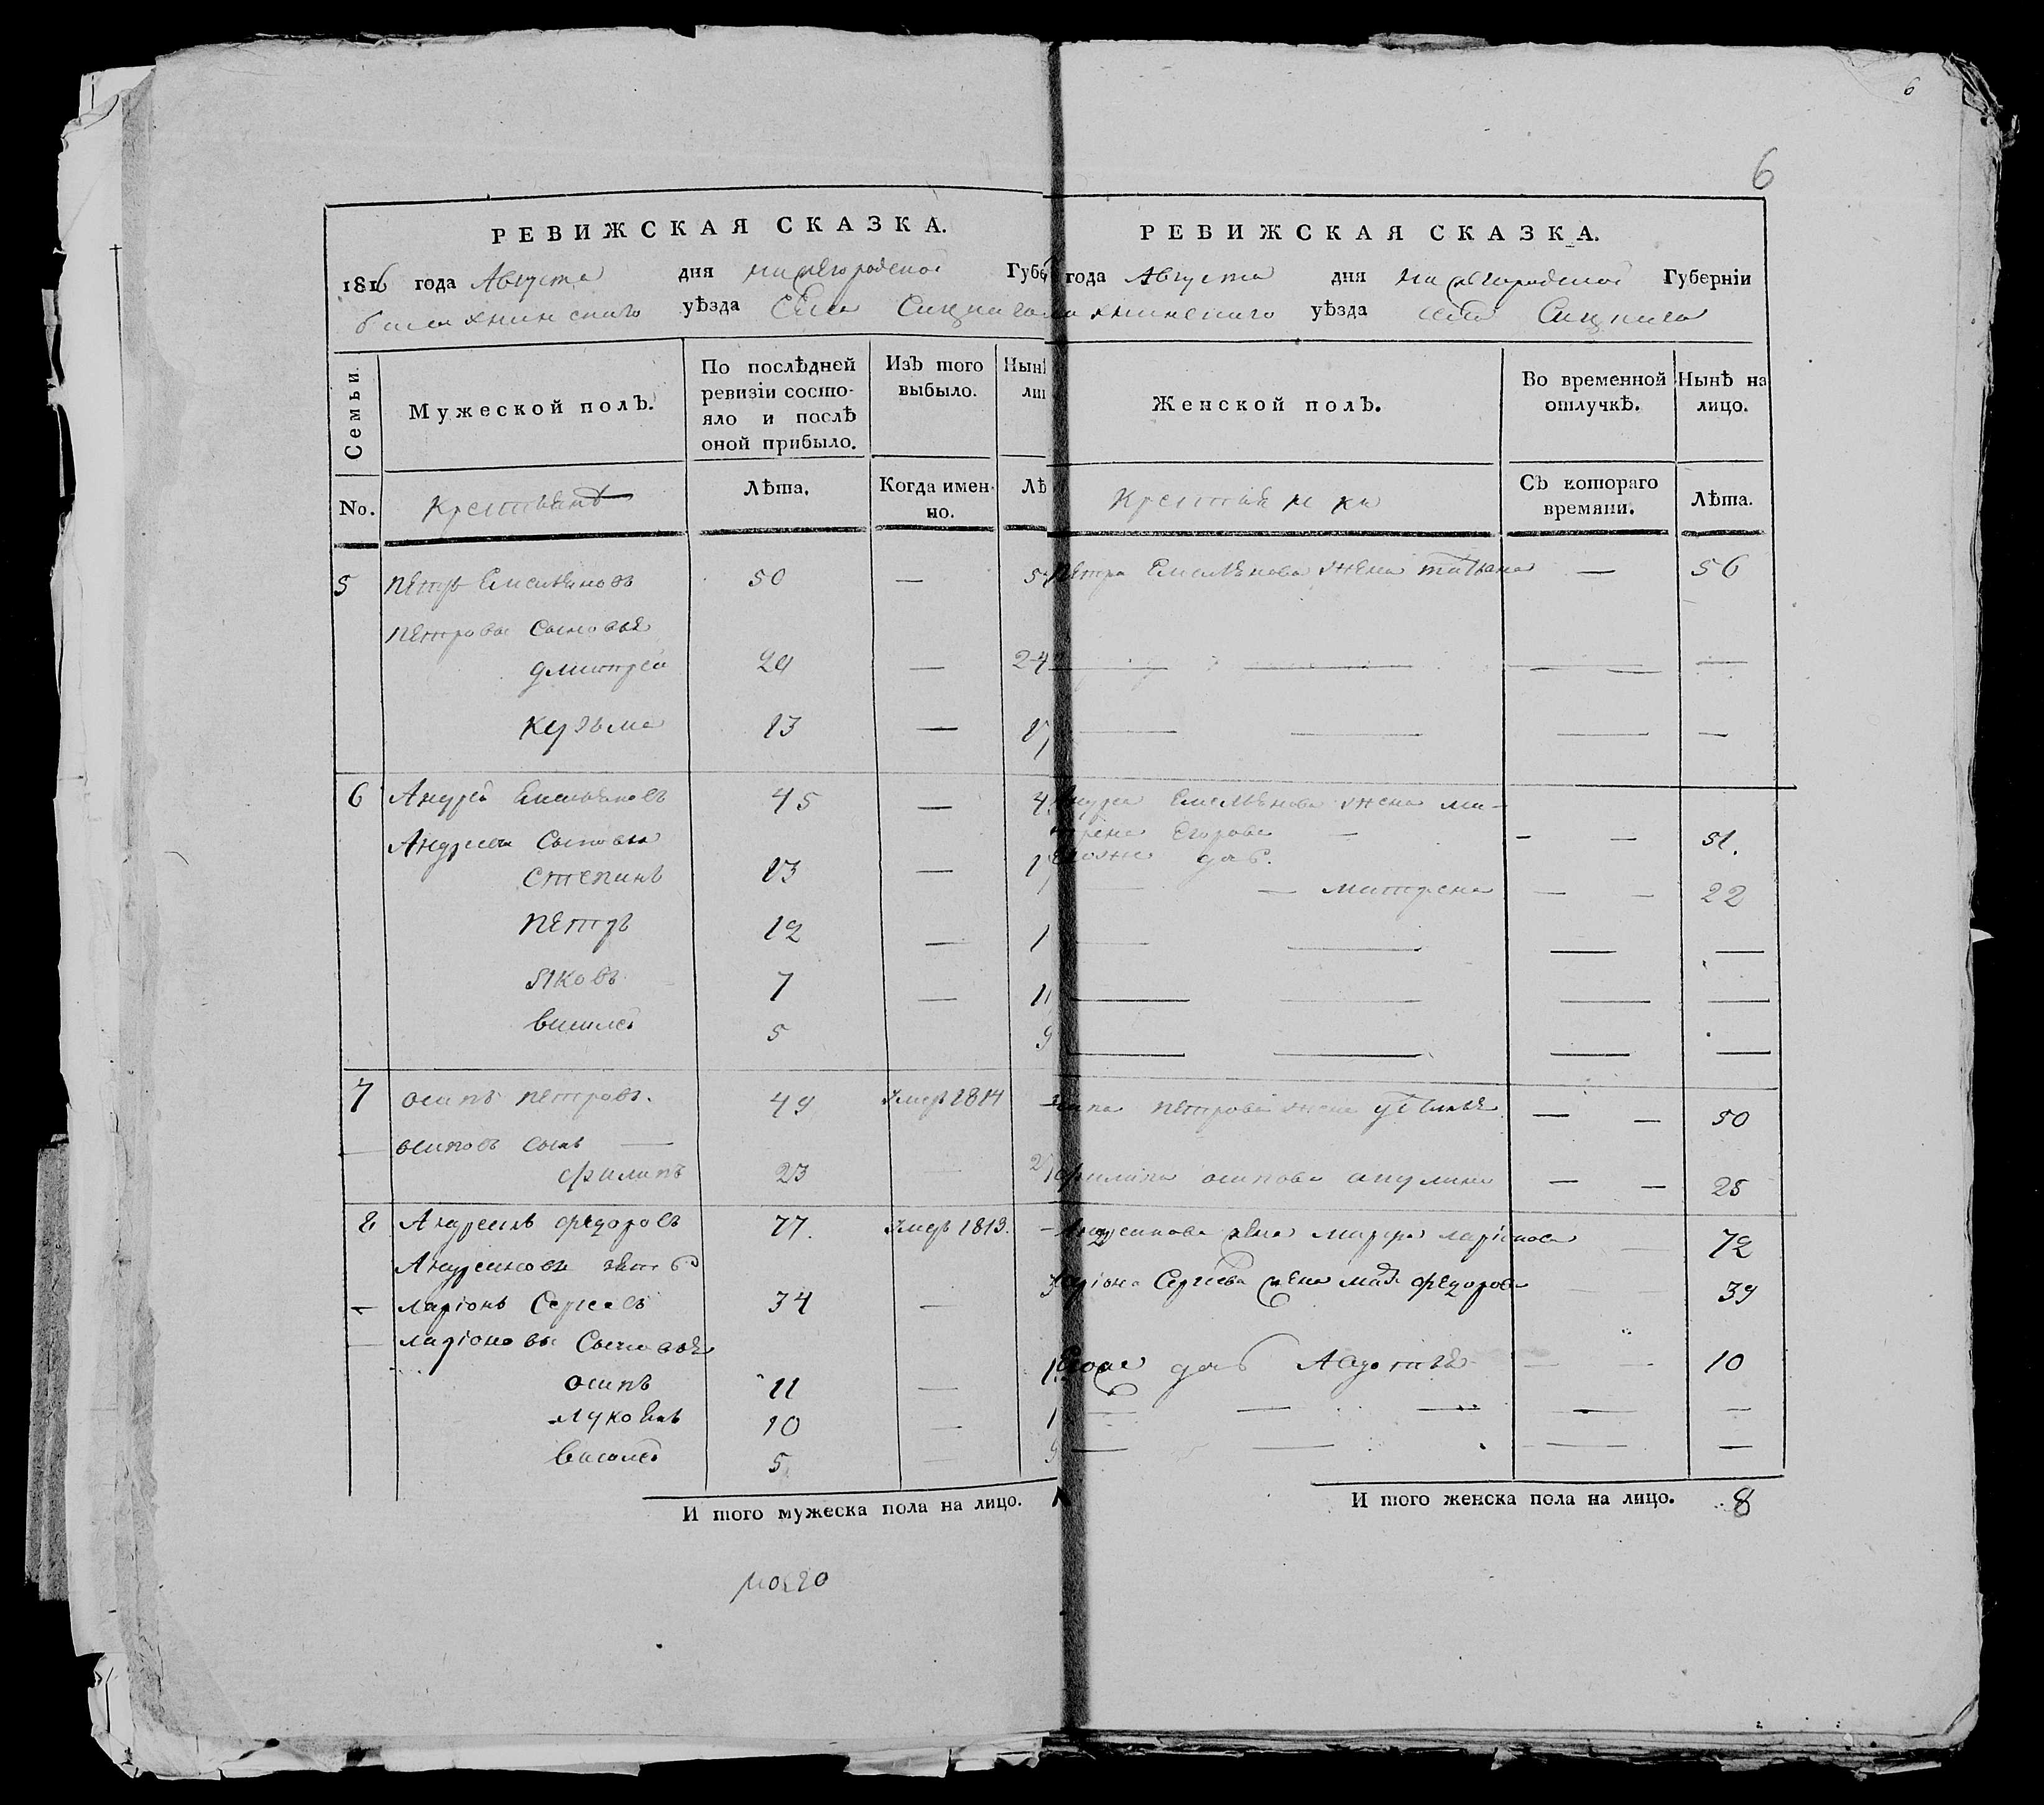 6
6
РЕВИЖСКАЯ СКАЗКА.
1816 года Августа дня нижегородской Губе
балахнинскаго уѣзда села Сицкаго
Семьи.
Мужеской полъ.
По послѣдней
ревизіи состо-
яло и послѣ
оной прибыло.
Изъ того
выбыло.
Нынѣ
ли
No.
крестьянъ
Лѣта.
Когда имен-
но.
Лѣ
5 петръ Емельяновъ 50 —
петровы Сыновья
дмитрей 20 — 24
кузьма 13 — 17
6 Андрей Емельяновъ 45 — 4
Андреевы Сыновья
степанъ 13 — 1
петръ 12 — 1
яковъ 7 — 11
василей 5 9
7 осипъ петровъ. 49 умеръ 1814
осиповъ сынъ —
филипъ 23 2
8 Андреянъ федоровъ 77. умеръ 1813. —
Андреяновъ зять
ларіонъ Сергеевъ 34 —
ларіоновы Сыновья
осипъ 11 — 1
лукоянъ 10 — 1
василей 5 9
И того мужеска пола на лицо.
РЕВИЖСКАЯ СКАЗКА.
года Августа дня нижегородской Губерніи
ахнинскаго уѣзда села Сицкаго
Женской полъ.
Во временной
отлучкѣ.
Нынѣ на
лицо.
крестьянки
Съ котораго
времяни.
Лѣта.
петра Емельянова жена татьяна — 56
Андрея Емельянова жена ма-
трена Егорова — — — 51.
Евоже дочь
— — матрена — — 22
осипа петрова жена устинья — — 50
филипа осипова акулина — — 25
Андреянова жена марфа ларіонова — 72
ларіона Сергеева жена федорова — 39
Евоже дочь Авдотья — — 10
И того женска пола на лицо. 8